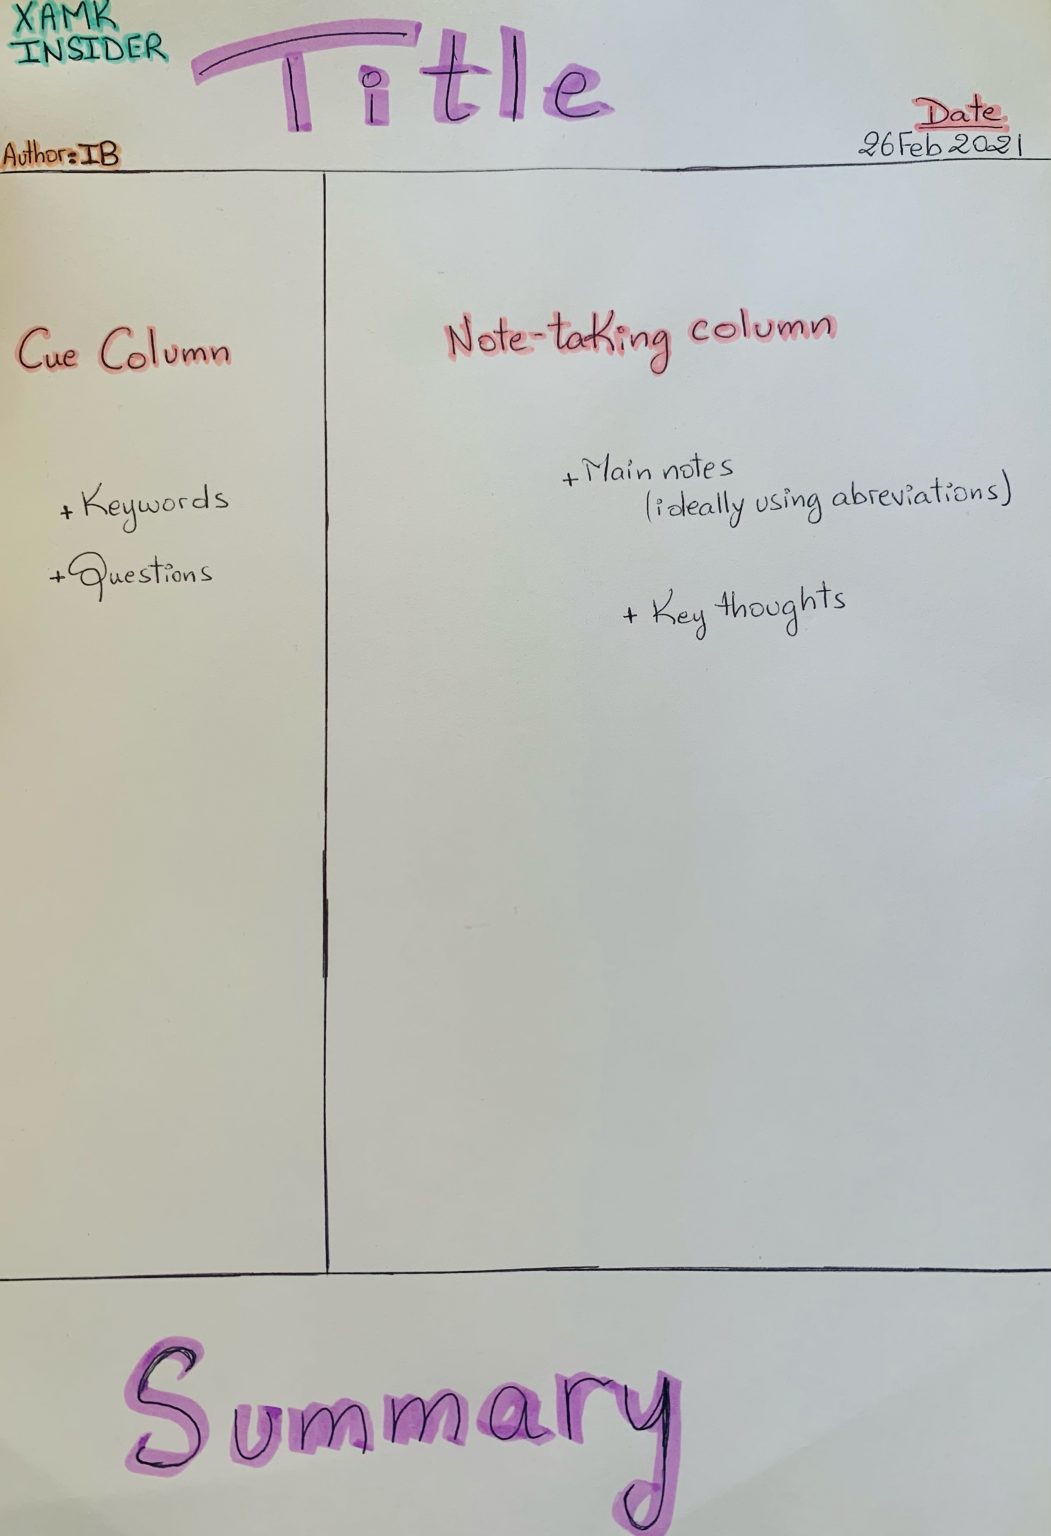 XAMK
INSIDER
Title
Date
26 Feb 2021
Author: IB
Cue Column
+ Keywords
+ Questions
Note-taking column
+ Main notes
(ideally using abreviations)
+ Key thoughts
Summary